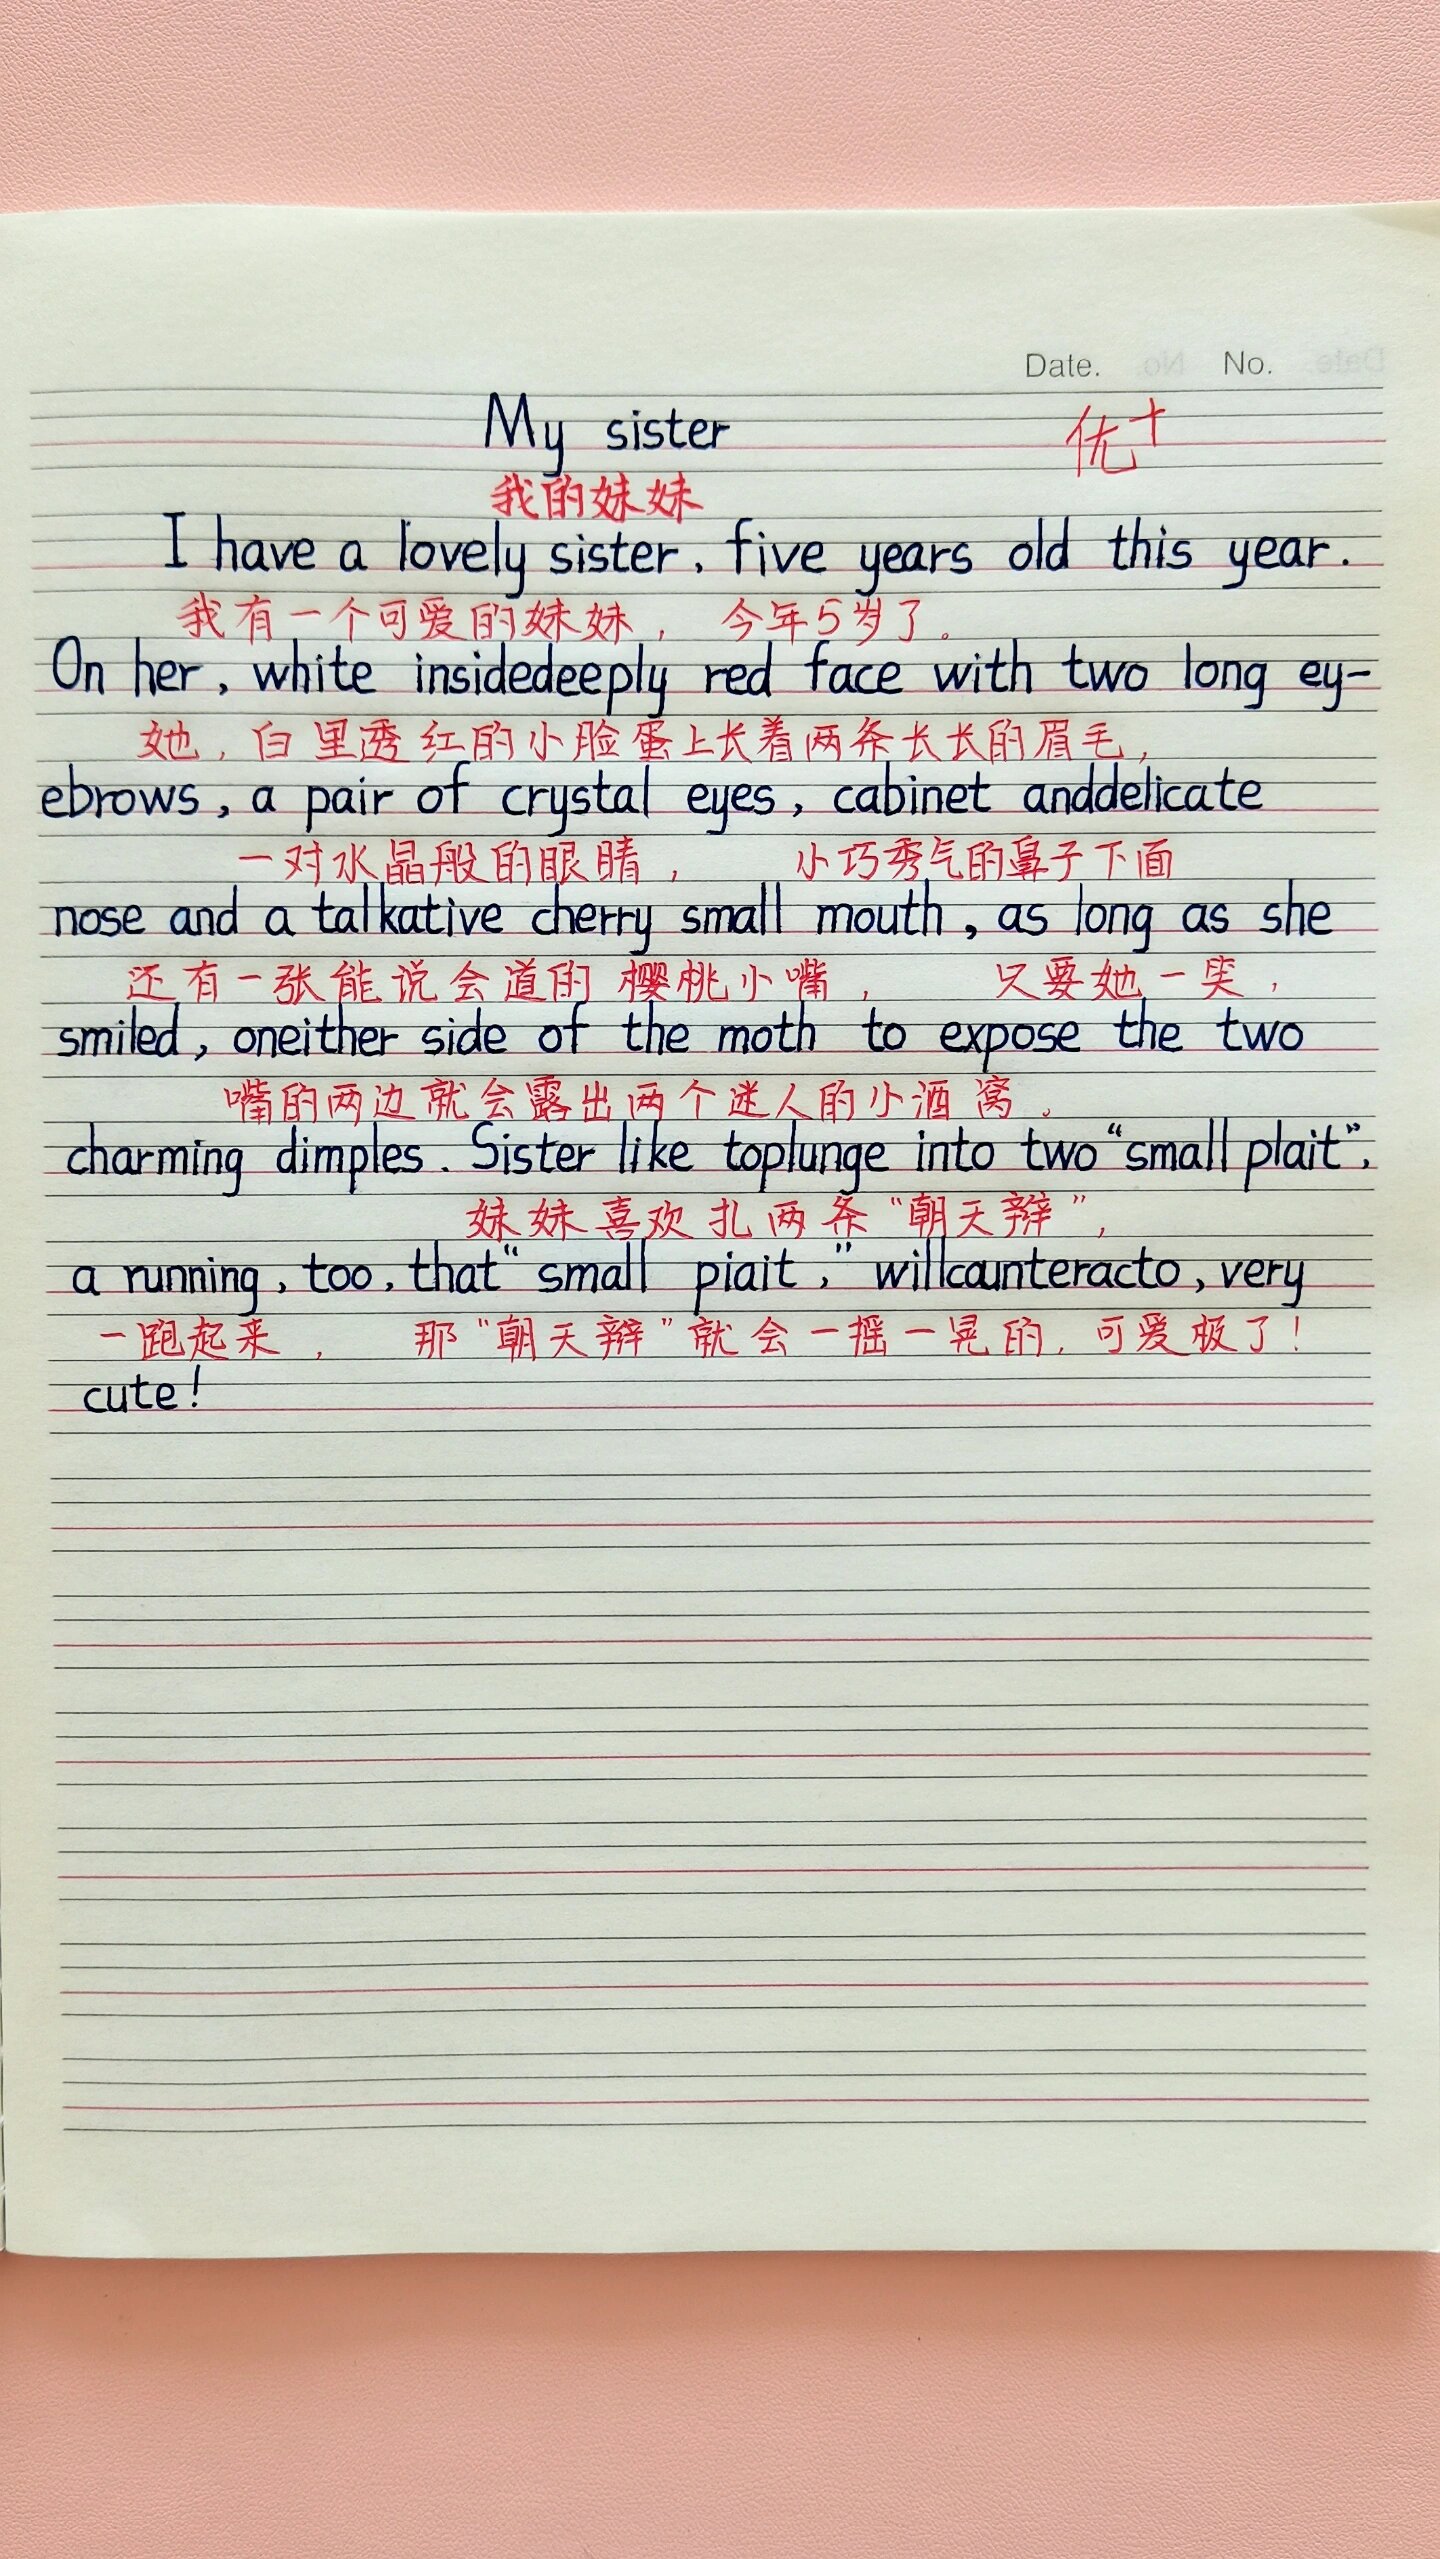 Date. No.
My sister 优+
我的妹妹
I have a lovely sister, five years old this year.
我有一个可爱的妹妹， 今年5岁了。
On her, white insidedeeply red face with two long ey-
她，白里透红的小脸蛋上长着两条长长的眉毛，
ebrows, a pair of crystal eyes, cabinet anddelicate
一对水晶般的眼睛， 小巧秀气的鼻子下面
nose and a talkative cherry small mouth, as long as she
还有一张能说会道的樱桃小嘴， 只要她一笑，
smiled, oneither side of the moth to expose the two
嘴的两边就会露出两个迷人的小酒窝。
charming dimples. Sister like toplunge into two “small plait”,
妹妹喜欢扎两条“朝天辫”，
a running, too, that “small piait,” willcaunteracto, very
一跑起来， 那“朝天辫”就会一摇一晃的，可爱极了！
cute!